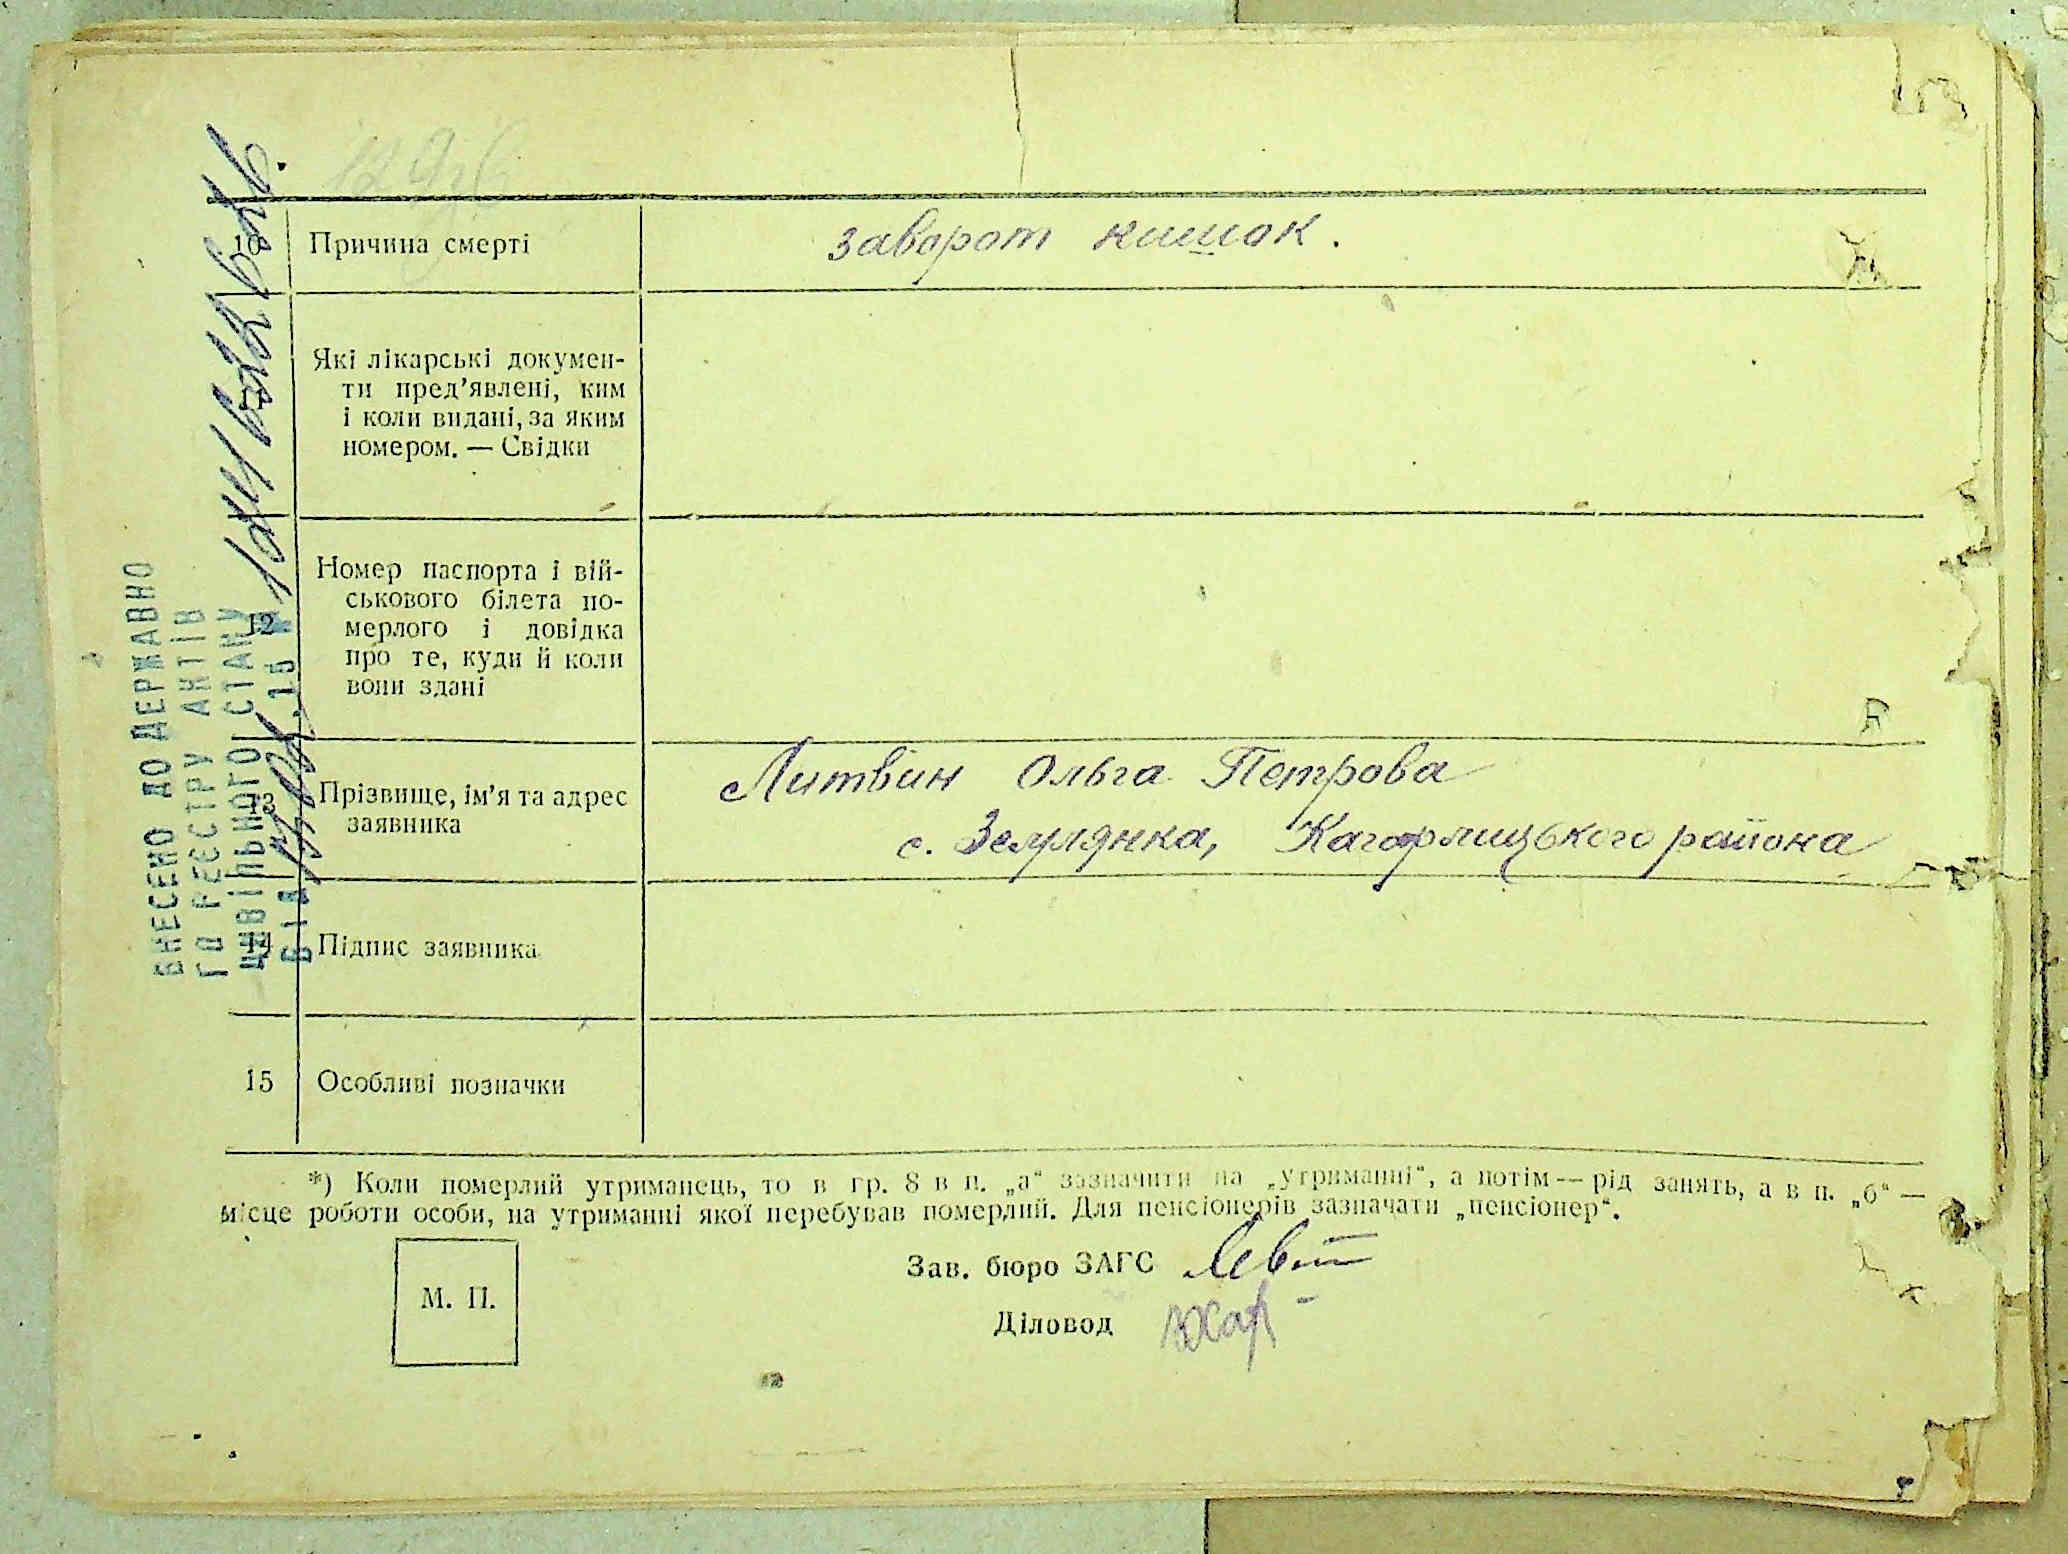 10 Причина смерті
заворот кишок.
Які лікарські докумен-
ти пред'явлені, ким
і коли видані, за яким
номером. — Свідки
12
Номер паспорта і вій-
ськового білета по-
мерлого і довідка
про те, куди й коли
вони здані
13 Прізвище, ім'я та адрес
заявника
Литвин Ольга Петрова
с. Землянка, Кагарлицького района
14 Підпис заявника
15 Особливі позначки
*) Коли померлий утриманець, то в гр. 8 в п. „а“ зазначити на „утриманні“, а потім — рід занять, а в п. „б“ —
місце роботи особи, на утриманні якої перебував померлий. Для пенсіонерів зазначати „пенсіонер“.
М. П.
Зав. бюро ЗАГС
Діловод
ВНЕСЕНО ДО ДЕРЖАВНО
ГО РЕЄСТРУ АКТІВ
ЦИВІЛЬНОГО СТАНУ
ВІД